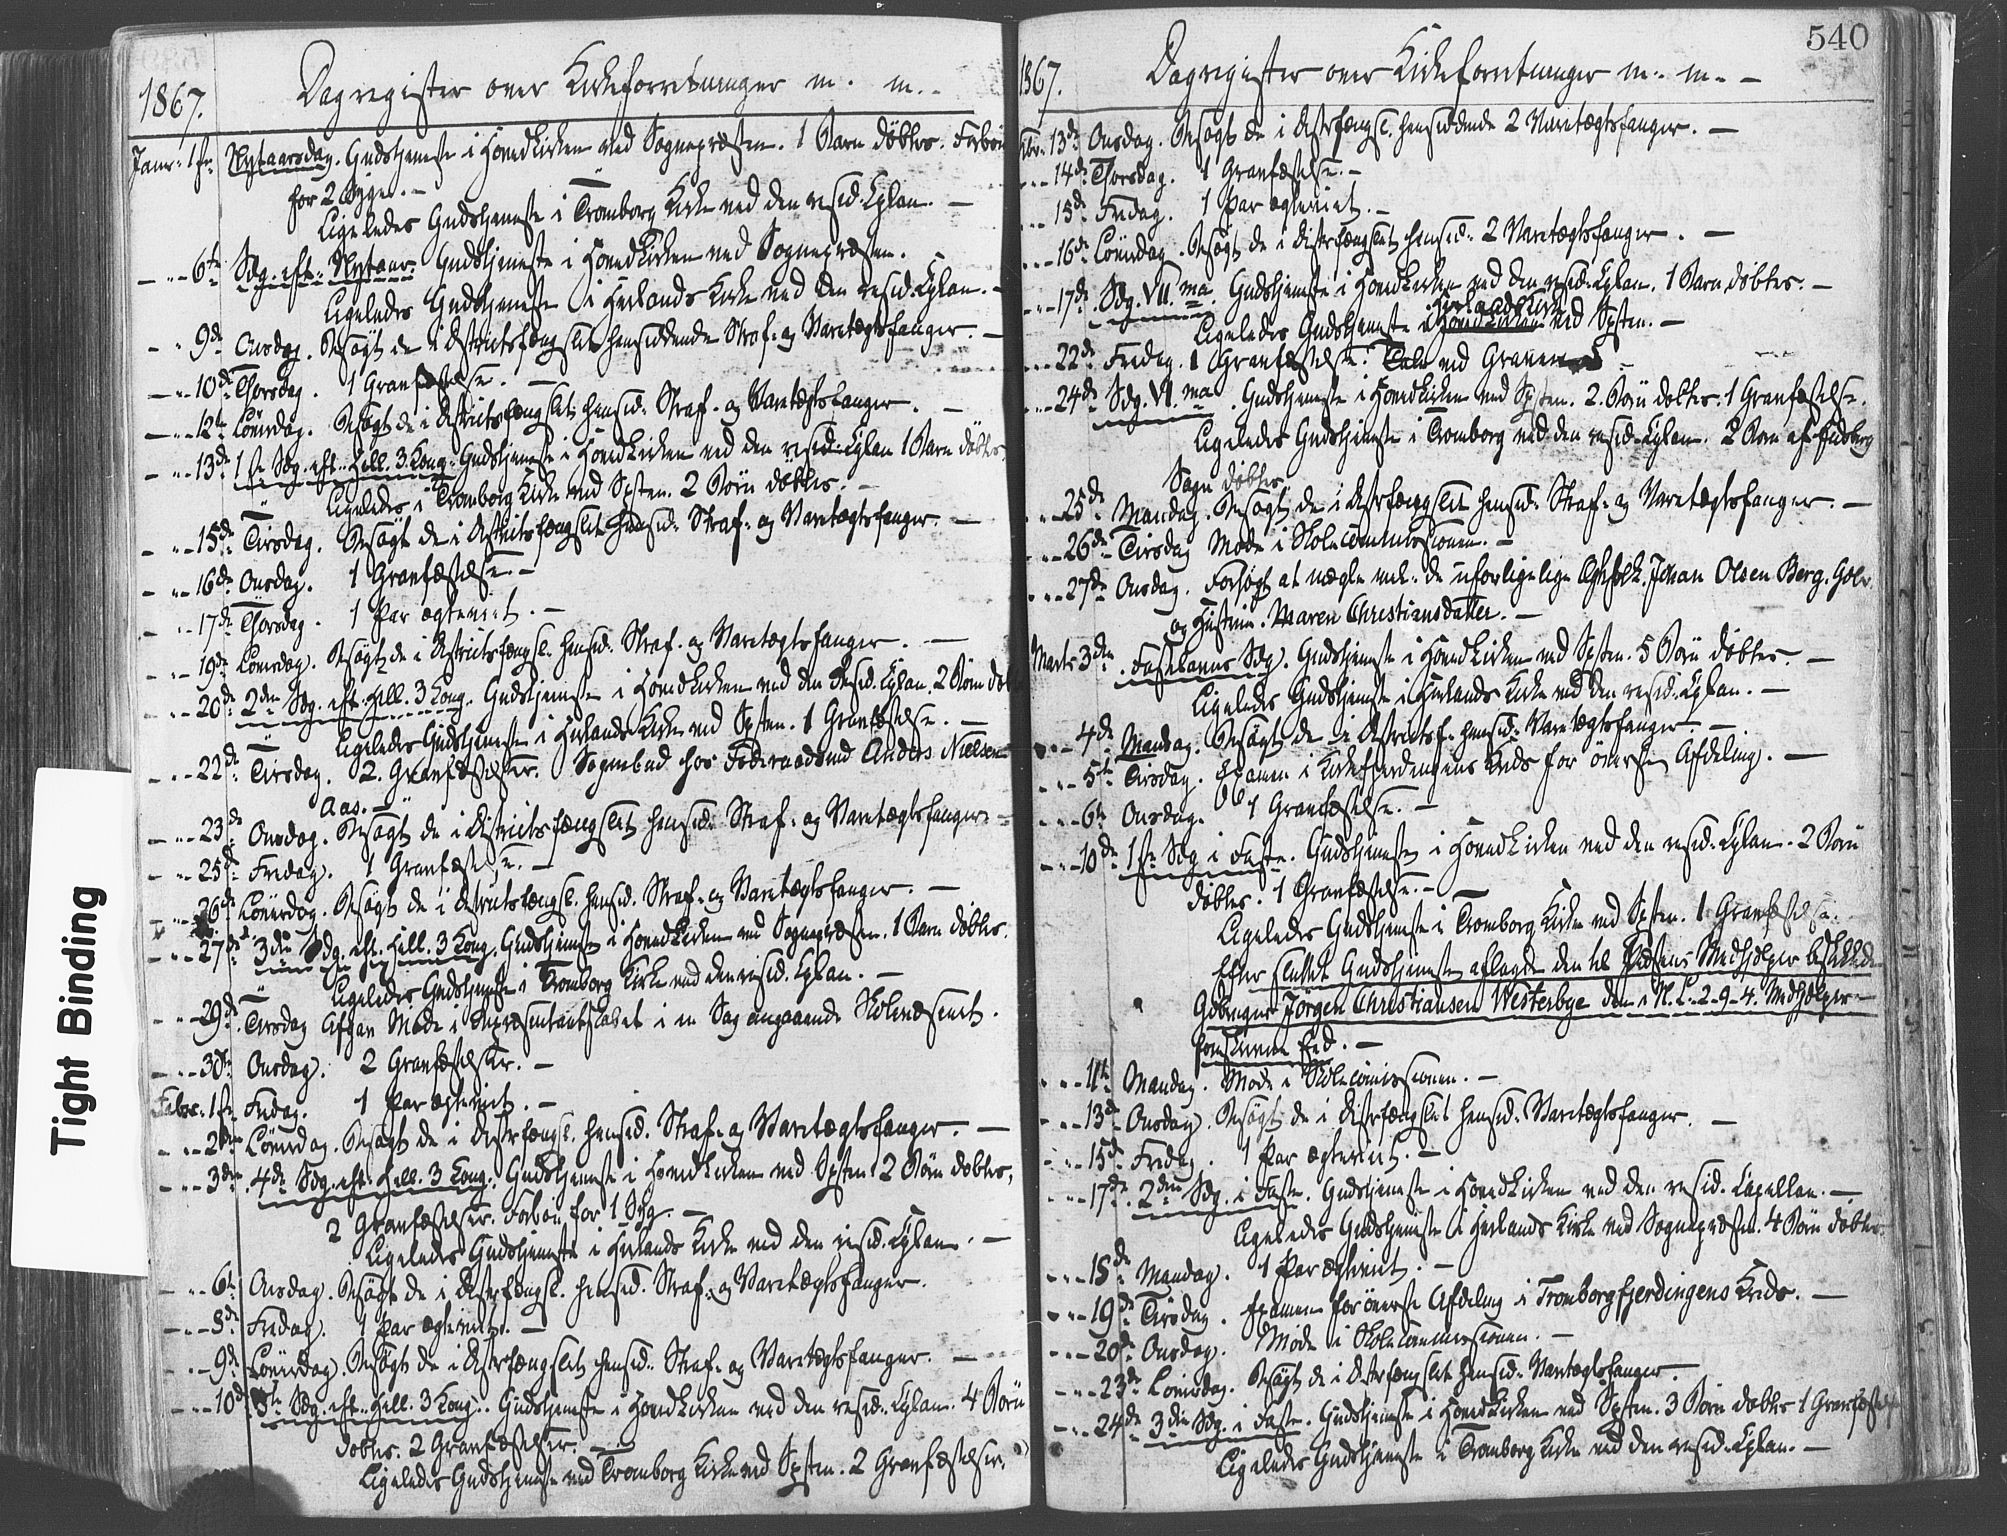 1867. Dagregister over Kirkeforretninger m. m.
Janr. 1ste Nytaarsdag. Gudstjeneste i Hovedkirken ved Sognepræsten. 1 Barn døbtes. Forbøn
for 2 Syge. –
Ligeledes Gudstjeneste i Trømborg Kirke ved den resid. Cplan. –
6te Sdg. eft. Nytaar. Gudstjeneste i Hovedkirken ved Sognepræsten.
Ligeledes Gudstjeneste i Herlands Kirke ved den resid. Cplan. –
9de Onsdag. Besøgt de i Districtsfængslet hensiddende Straf- og Varetægtsfanger. –
10de Thorsdag. 1 Gravfæstelse. –
12te Løverdag. Besøgt de i Districtsfængslet hensid. Straf- og Varetægtsfanger. –
13de 1ste Sdg. eft. Hell. 3 Kong. Gudstjeneste i Hovedkirken ved den resid. Cplan 1 Barn døbtes.
Ligeledes i Trømborg Kirke ved Spsten. 2 Børn døbtes. –
15de Tirsdag. Besøgt de i Districtsfængslet hensid. Straf- og Varetægtsfanger. –
16de Onsdag. 1 Gravfæstelse. –
17de Thorsdag. 1 Par ægteviet. –
19de Løverdag. Besøgt de i Districtsfængsl. hensid. Straf- og Varetægtsfanger. –
20de 2den Sdg. eft. Hell. 3 Kong. Gudstjeneste i Hovedkirken ved den Resid. Cplan. 2 Børn døb
Ligeledes Gudstjeneste i Herlands Kirke ved Spsten. 1 Gravfæstelse. –
22de Tirsdag. 2 Gravfæstelser. Sognebud hos Føderaadsmd Anders Nielsen
Aas. –
23de Onsdag. Besøgt de i Districtsfængslet hensid. Straf- og Varetægtsfanger. –
25de Fredag. 1 Gravfæstelse. –
26de Løverdag. Besøgt de i Districtsfængsl. hensid. Straf- og Varetægtsfanger. –
27de 3die Sdg. eft. Hell. 3 Kong. Gudstjeneste i Hovedkirken ved Sognepræsten. 1 Barn døbtes.
Ligeledes Gudstjeneste i Trømborg Kirke ved den resid. Cplan. –
29de Tirsdag Møde i Repræsentantskabet i en Sag angaaende Skolevæsenet.
30te Onsdag. 2 Gravfæstelser. –
Febr. 1ste Fredag. 1 Par ægteviet. –
2den Løverdag. Besøgt de i Distrfængsl. hensid. Straf- og Varetægtsfanger. –
3die 4de Sdg. eft. Hell. 3 Kong. Gudstjeneste i Hovedkirken ved Spsten 2 Børn døbtes,
2 Gravfæstelser. Forbøn for 1 Syg. –
Ligeledes Gudstjeneste i Herlands Kirke ved den resid. Cplan. –
6te Onsdag. Besøgt de i Distrfængsl. hensid. Straf- og Varetægtsfanger.
8de Fredag. 1 Par ægteviet. –
9de Løverdag. Besøgt de i Distrfængslet hensid. Straf- og Varetægtsfanger. –
10de 5te Sdg. eft. Hell. 3 Kong. Gudstjeneste i Hovedkirken ved den resid. Cplan. 4 Børn
døbtes. 2 Gravfæstelser. –
Ligeledes Gudstjeneste ved Trømborg Kirke ved Spsten. 2 Gravfæstelser.
Tight Binding
540
1867. Dagregister over Kirkeforretninger m. m. –
Febr. 13de Onsdag. Besøgt de i Distrfængsl. hensiddende 2 Varetægtsfanger. –
14de Thorsdag. 1 Gravfæstelse. –
15de Fredag. 1 Par ægteviet. –
16de Løverdag. Besøgt de i Distrfængslet hensid. 2 Varetægtsfanger. –
17de Sdg. VII. ma. Gudstjeneste i Hovedkirken ved den resid. Cplan. 1 Barn døbtes. –
Herlands Kirke
Ligeledes Gudstjeneste i Hovedkirken ved Spsten. –
22de Fredag. 1 Gravfæstelse. Tale ved Graven
24de Sdg. VI. ma. Gudstjeneste i Hovedkirken ved Spsten. 2 Børn døbtes. 1 Gravfæstelse.
Ligeledes Gudstjeneste i Trømborg ved den resid. Cplan. 2 Børn af Eidsberg
Sogn døbtes.
25de Mandag. Besøgt de i Distrfængslet hensid. Straf- og Varetægtsfanger. –
26de Tirsdag Møde i Skolecommissionen. –
27de Onsdag. Forsøgt at mægle ml. de uforligelige Ægtefolk. Johan Olsen Berg. Holv.
og Hustru. Maren Christiansdatter. –
Marts 3die Fastelavns Sdg. Gudstjeneste i Hovedkirken ved Spsten. 5 Børn døbtes. –
Ligeledes Gudstjeneste i Herlands Kirke ved den resid. Cplan. –
4de Mandag. Besøgt de i Districtsf. hensid. Varetægtsfanger. –
5te Tirsdag. Examen i Kirkefjerdengens Kreds for øverste Afdeling. –
6te Onsdag. 1 Gravfæstelse. –
10de 1ste Sdg i Faste. Gudstjeneste i Hovedkirken ved den resid. Cplan. 2 Børn
døbtes. 1 Gravfæstelse. –
Ligeledes Gudstjeneste i Trømborg Kirke ved Spsten. 1 Gravfæstelse.
Efter sluttet Gudstjeneste aflagde den til Præstens Medhjelper beskikkede
Gdbruger Jørgen Christiansen Westerbye den i N. L. 2-9-4. Medhjelper
foreskrevne Eed. –
11te Mandag. Møde i Skolecomissionen. –
13de Onsdag. Besøgt de i Distrfængslet hensid. Varetægtsfanger. –
15de Fredag. 1 Par ægteviet. –
17de 2den Sdg. i Faste. Gudstjeneste i Hovedkirken ved den resid. Capellan. –
Ligeledes Gudstjeneste i Herlands Kirke ved Sognepræsten. 4 Børn døbtes.
18de Mandag. 1 Par ægteviet. –
19de Tirsdag. Examen for øverste Afdeling i Trømborgfjerdingens Kreds. –
20de Onsdag. Møde i Skolecommissionen. –
23de Løverdag. Besøgt de i Distrfængslet hensid. Varetægtsfanger.
24de 3die Sdg. i Faste. Gudstjeneste i Hovedkirken ved Spsten. 3 Børn døbtes 1 Gravfæstelse
Ligeledes Gudstjeneste i Trømborg Kirke ved den resid. Cplan. –